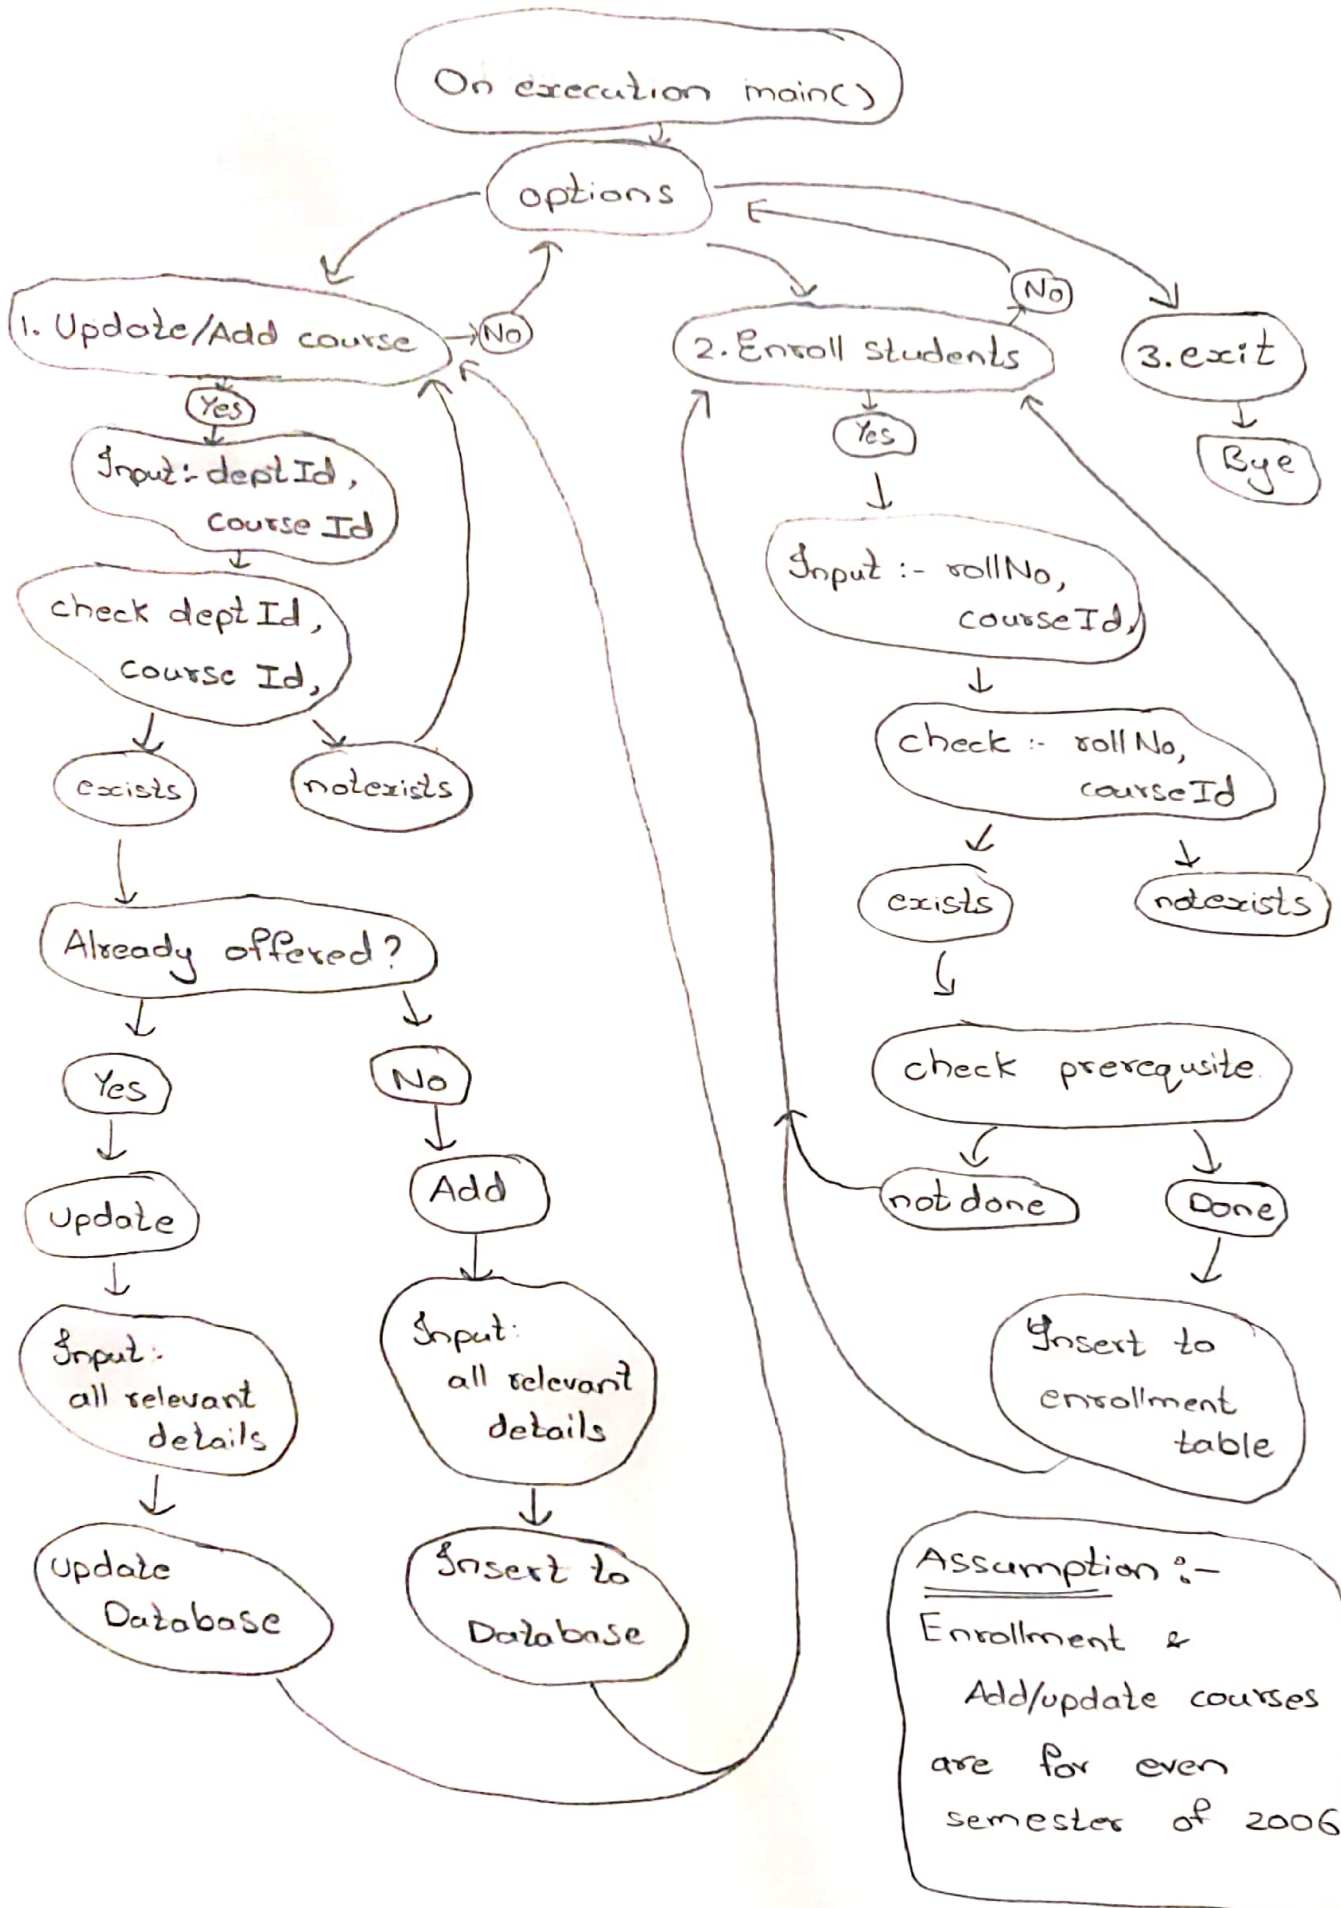 On execution main()
options
1. Update/Add course
No
Yes
Input:- deptId,
course Id
check deptId,
course Id,
exists
notexists
Already offered?
Yes
No
Update
Add
Input:
all relevant
details
Input:
all relevant
details
Update
Database
Insert to
Database
2. Enroll students
No
Yes
Input :- rollNo,
courseId,
check :- rollNo,
courseId
exists
notexists
check prerequsite
not done
Done
Insert to
enrollment
table
3. exit
Bye
Assumption :-
Enrollment &
Add/update courses
are for even
semester of 2006